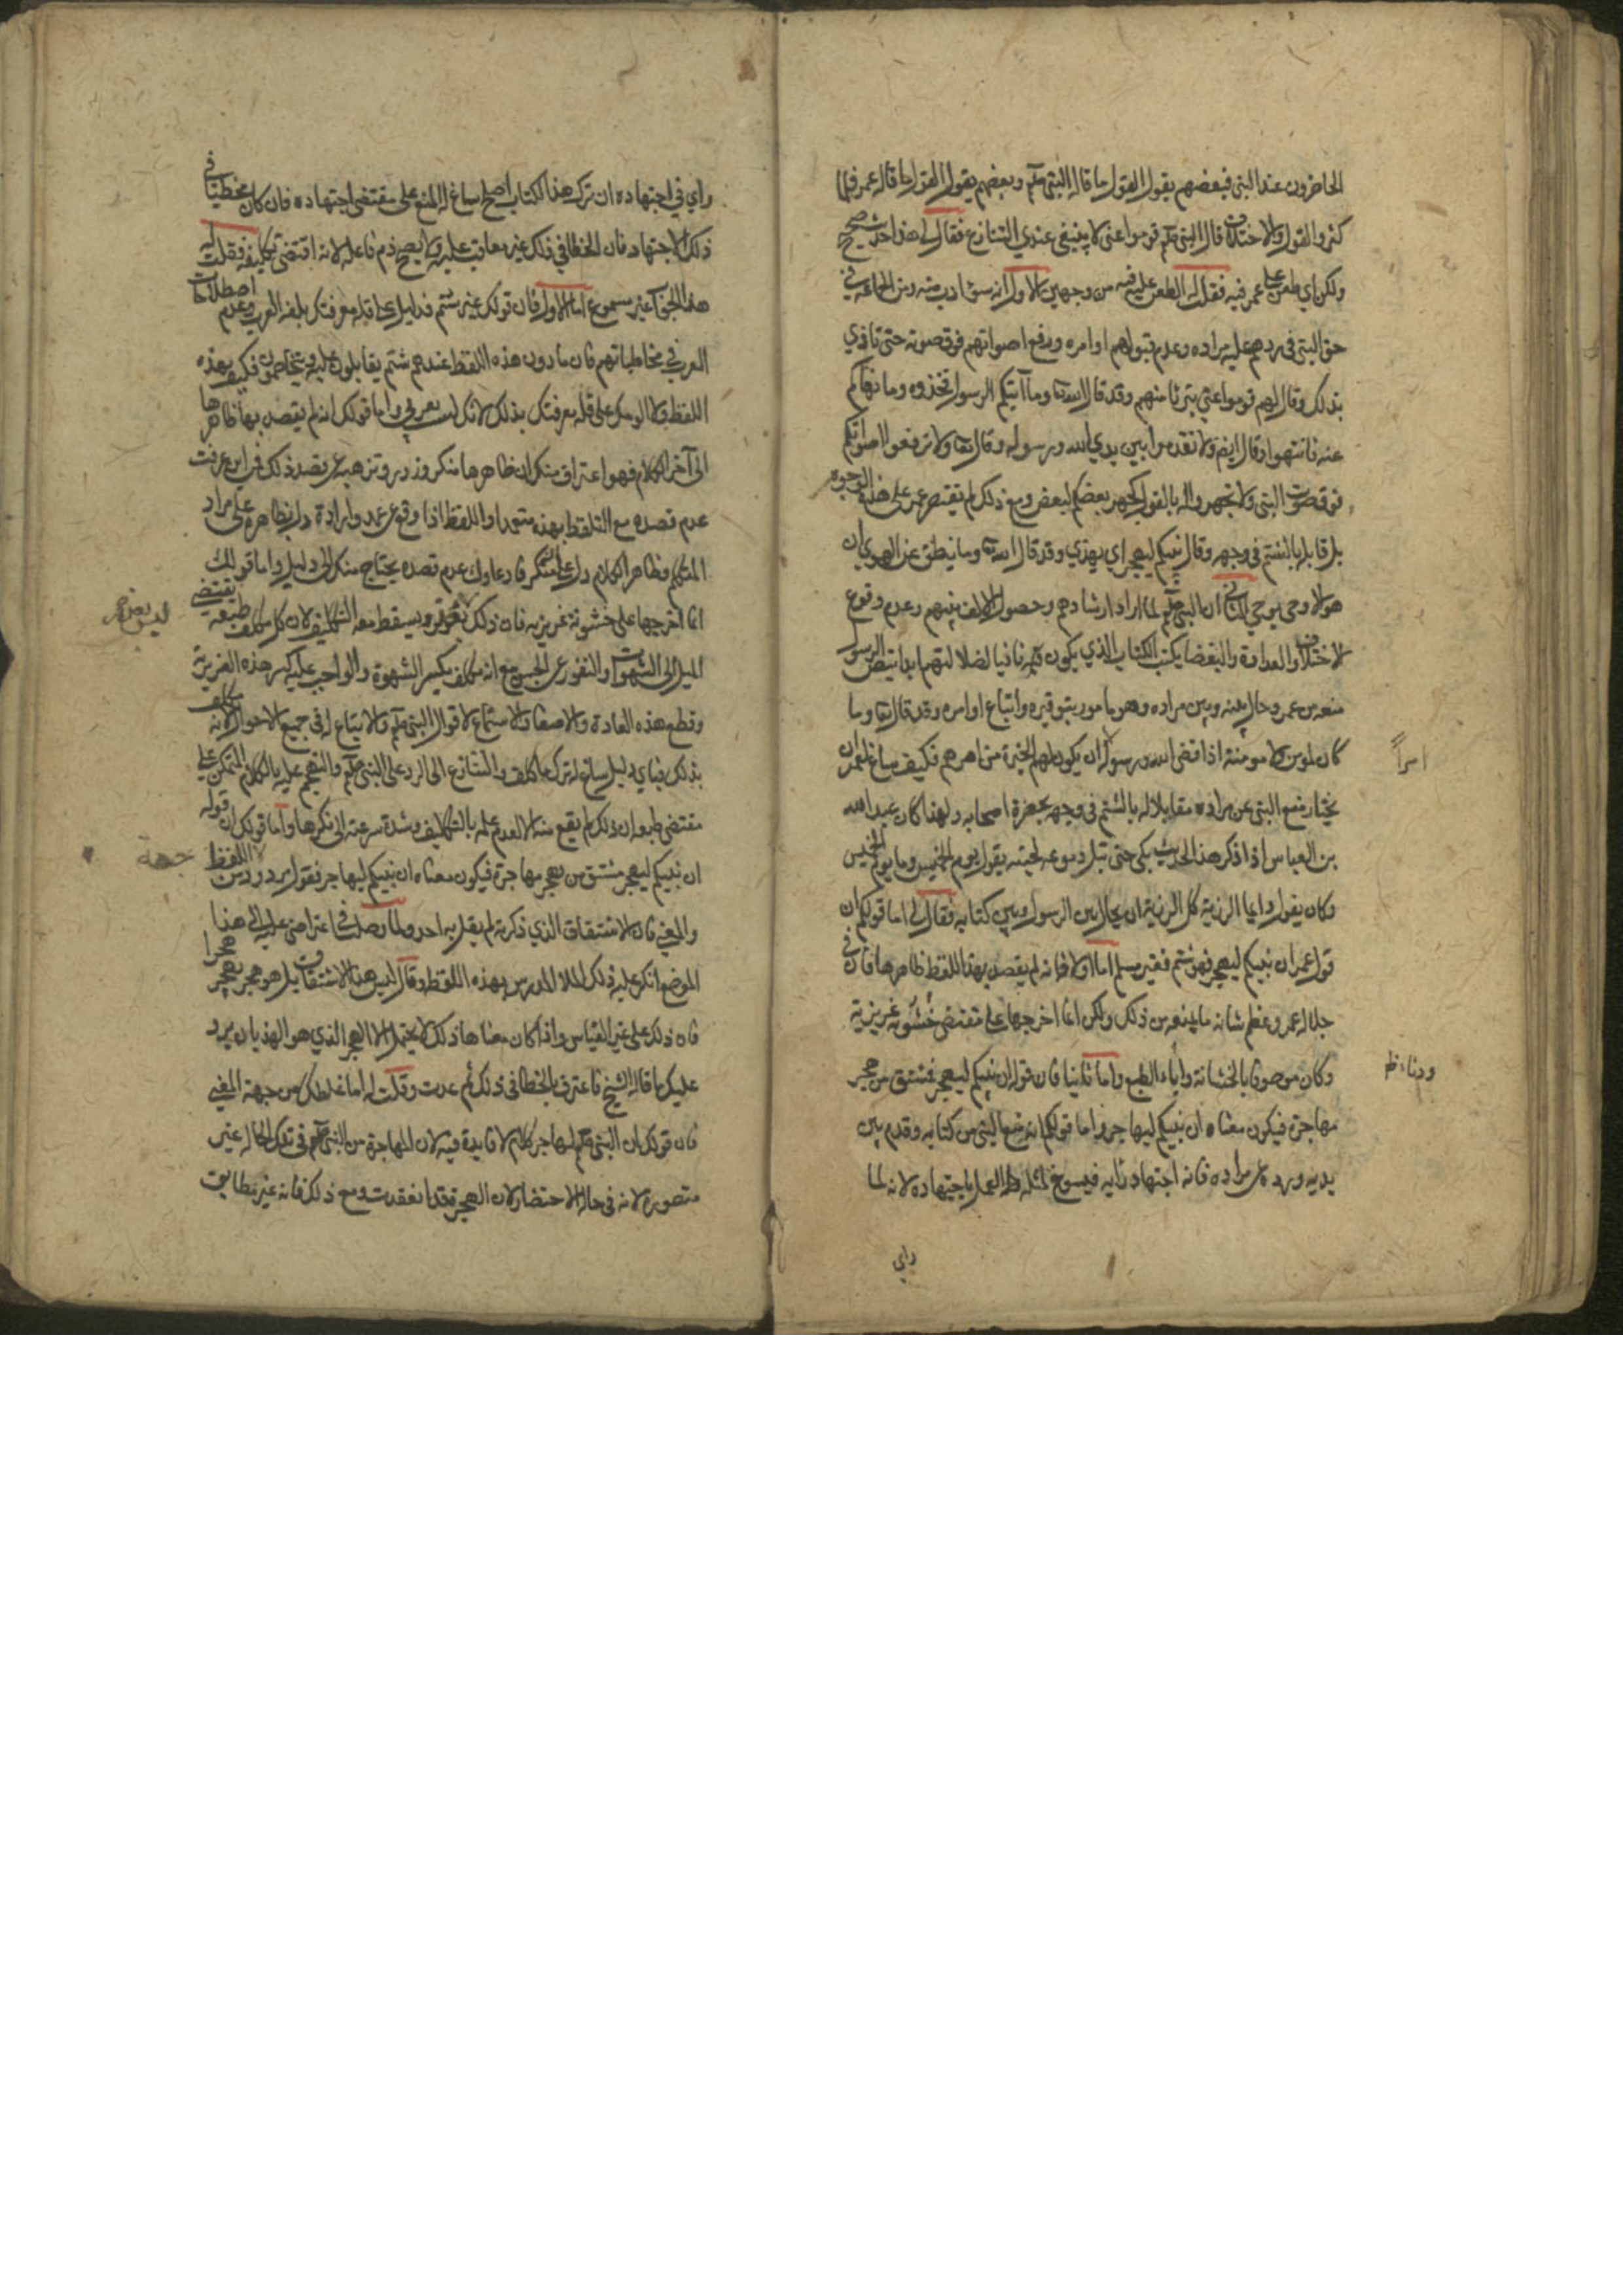 الحاضرون عند النبي فبعضهم يقول القول ما قاله النبي صلعم وبعضهم يقول القول ما قاله عمر فلما
كثر القول والاختلاف قال النبي صلعم قوموا عني لا ينبغي عندي التنازع فقال لي هذا حديث صحيح
ولكن اي طعن على عمر فيه فقلت له الطعن عليه فيه من وجهين الاول انه سوء ادب منه ومن الجماعة في
حق النبي في ردهم عليه مراده وعدم قبولهم اوامره ورفع اصواتهم فوق صوته حتى تاذي
بذلك وقال لهم قوموا عني تبريا منهم وقد قال الله تعا وما آتيكم الرسول فخذوه وما نهاكم
عنه فانتهوا وقال ايضا ولا تقدموا بين يدي الله ورسوله وقال تعا ولا ترفعوا اصواتكم
فوق صوت النبي ولا تجهروا له بالقول كجهر بعضكم لبعض ومع ذلك لم تقتصر عمر على هذه الوجوه
بل قابله بالشتم في وجهه وقال ان نبيكم ليهجر اي يهذي وقد قال الله تعا وما ينطق عن الهوى ان
هو الا وحي يوحي الثاني ان النبي صلعم لما اراد ارشادهم وحصول الالفة بينهم وعدم وقوع
الاختلاف والعداوة والبغضا بكتب الكتاب الذي يكون فيه نافيا لضلالتهم ابدا بنص الرسول
منعه من عمر وحال بينه وبين مراده وهو مامور بتوقيره واتباع اوامره وقد قال تعا وما
كان لمؤمن ولا مومنة اذا قضى الله ورسوله ان يكون لهم الخيرة من امرهم فكيف ساغ لعمر ان
امراً
يختار منع النبي عن مراده مقابلا له بالشتم في وجهه بحضرة اصحابه ولهذا كان عبد الله
بن العباس اذا ذكر هذا الحديث بكى حتى تبل دموعه لحيته يقول يوم الخميس وما يوم الخميس
وكان يقول دايما الرزية كل الرزية ان يحال بين الرسول وبين كتابه فقال لي اما قولكم ان
قول عمر ان نبيكم ليهجر فهو شتم فغير مسلم اما اولا فانه لم يقصد بهذا اللفظ ظاهرها فان في
جلالة عمر وعظم شانه ما يمنعه من ذلك ولكن انما اخرجها على مقتضى خشونة غريزية
وكان موصوفا بالخشانة واباء الطبع واما ثانيا فان قوله ان نبيكم ليهجر فمشتق من هجر
مهاجرة فيكون معناه ان نبيكم ليهاجر واما قولكم انه منع النبي من كتابه وقدم بين
يديه ورده عن مراده فانه اجتهاد رايه فيسوغ لمثله العمل باجتهاده لانه لما
راي
راي في اجتهاده ان ترك هذا الكتاب اصلح ساغ له المنع على مقتضى اجتهاده فان كان مخطيا في
ذلك الاجتهاد فان الخطا في ذلك غير معاقب عليه ولا يصح ذم فاعله لانه اقتضى تكليفه فقلت له
هذا الجواب غير مسموع اما الاول فان قولك غير شتم فدليل على قلة معرفتك بلغة العرب وعدم اصطلاحات
العرب في مخاطباتهم فان ما دون هذه اللفظ عندهم شتم يقابلون عليه ويتخاصمون فكيف بهذه
اللفظ ولا الومك على قلة معرفتك بذلك لانك لست بعربي واما قولك انه لم يقصد بها ظاهرها
الى آخر الكلام فهو اعتراف منك ان ظاهرها منكر وزور وتزهب عن قصد ذلك فمن اين عرفت
عدم قصده مع التلفظ بهذه متعمدا واللفظ اذا وقع عن عمد وارادة دل بظاهره على مراد
المتكلم فظاهر الكلام دل على المنكر فادعاوك عدم قصده يحتاج منك الى دليل واما قولك
انما اخرجها على خشونة غريزية فان ذلك يعذر ويسقط معه التكليف لان كل مكلف طبعه يقتضي
ليس بعذر
الميل الى الشهوات والنفور عن الحسن مع انه مكلف بكسر الشهوة والواجب عليه كسر هذه الغريزة
وقطع هذه العادة والاصغا والاستماع لاقوال النبي صلعم والاتباع له في جميع الاحوال لانه مكلف
بذلك فباي دليل ساغ له ترك ما كلف والتنازع الى الرد على النبي صلعم والتهجم عليه بالكلام المنكر على
مقتضى طبعه ان ذلك لم يقع منه الا لعدم علمه بالتكليف وشدة سرعته الى نكرها واما قولك ان قوله
ان نبيكم ليهجر مشتق من هجر مهاجرة فيكون معناه ان نبيكم ليهاجر فنقول مردود من اللفظ
جهة
والمعنى فان الاشتقاق الذي ذكرته لم يقل به احد ولما وصلت في اعتراضي عليه الى هذا
الموضع انكر عليه ذلك الملا المدرس بهذه اللفظ وقال ليس هذا الاشتقاق بل هو هجر يهجر هجرا
فان ذلك على غير القياس واذا كان معناها ذلك لا يحتمل الا الهجر الذي هو الهذيان يرد
عليك ما قاله الشيخ فاعترف بالخطا في ذلك ثم عدت وقلت له اما غلطك من جهة المعنى
فان قولك ان النبي صلعم ليهاجر كلام لا فايدة فيه لان المهاجرة من النبي صلعم في تلك الحالة غير
متصورة لانه في حالة الاحتضار لان الهجرة قد انعقدت ومع ذلك فانه غير مطابق